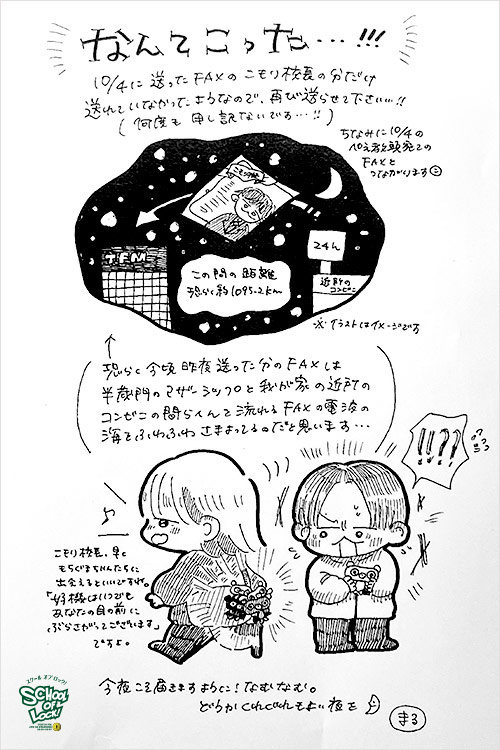 なんてこった…!!!
10/4に送ったFAXのこもり校長の分だけ
送れていなかったようなので、再び送らせて下さい…!!
(何度も申し訳ないです…!!)
ちなみに10/4の
ぺえ教頭宛ての
FAXと
つながります
TFM
24h
近所の
コンビニ
この間の距離
恐らく約1095.2km
※イラストはイメージです
恐らく今頃昨夜送った分のFAXは
半蔵門のマザーシップと我が家の近所の
コンビニの間らへんで流れるFAXの電波の
海でふわふわさまよってるのだと思います…
!!??
♪
こもり校長、早く
ちゃんたちに
出会えるといいですね。
「好機はいつでも
あなたの目の前に
ぶらさがってございます」
ですよ。
今夜こそ届きますように!なむなむ。
どうかくれぐれもよい夜を
まる
スクール オブ ロック!
SCHOOL
OF
LOCK!